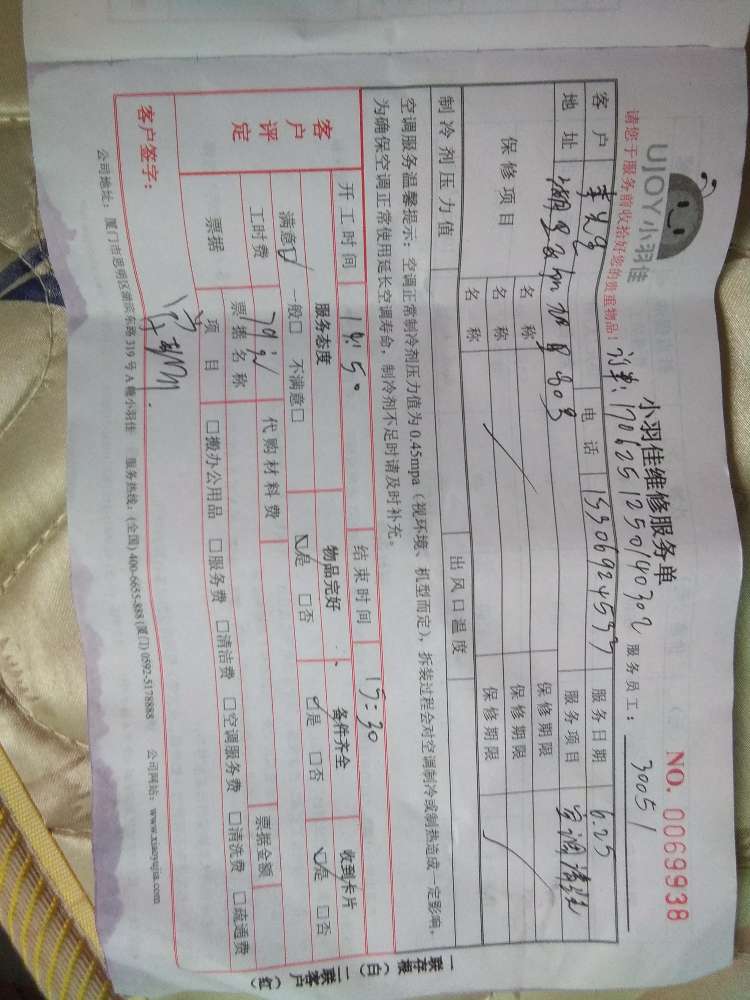 UJOY小羽佳
小羽佳维修服务单
NO. 0069938
请您于服务前收拾好您的贵重物品！
服务员工： 30051
客户 李先生 电话 服务日期 6.25
地址 服务项目 空调清洗
保修项目 名称 保修期限
名称 保修期限
名称 保修期限
制冷剂压力值 出风口温度
空调服务温馨提示：空调正常制冷剂压力值为0.45mpa（视环境、机型而定），拆装过程会对空调制冷或制热造成一定影响，
为确保空调正常使用延长空调寿命，制冷剂不足时请及时补充。
客户评定
开工时间 14:50 结束时间 15:30
服务态度 物品完好 备件齐全 收到卡片
满意☑ 一般□ 不满意□ ☑是 □否 ☑是 □否 ☑是 □否
工时费 代购材料费
票据 票据名称 票据金额
项目 □搬办公用品 □服务费 □清洁费 □空调服务费 □清洗费 □疏通费
客户签字：
公司地址：厦门市思明区湖滨东路319号A幢小羽佳 服务热线：(全国) 400-6655-888 (厦门) 0592-5178888 公司网站：www.xiaoyujia.com
一联存根（白） 二联客户（红）